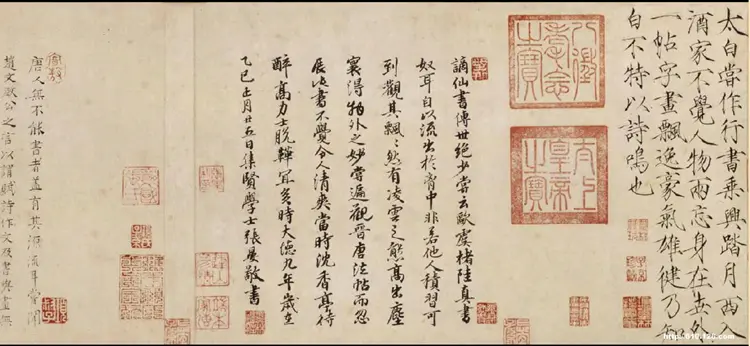 太白嘗作行書乘興踏月西入
酒家不覺人物兩忘身在世外
一帖字畫飄逸豪氣雄健乃知
白不特以詩鳴也
八徵耄念之寶
太上皇帝之寶
謫仙書傳世絕少嘗云歐虞褚陸真書
奴耳自以流出於胷中非若他人積習可
到觀其飄飄然有凌雲之態高出塵
寰得物外之妙嘗遍觀晉唐法帖而忽
展此書不覺令人清爽當時沈香亭待
醉高力士脫鞾宜矣時大德九年歲在
乙巳正月廿五日集賢學士張晏敬書
唐人無不能書者蓋有其源流耳嘗聞
趙文獻公之言以謂賦詩作文及書與畫無